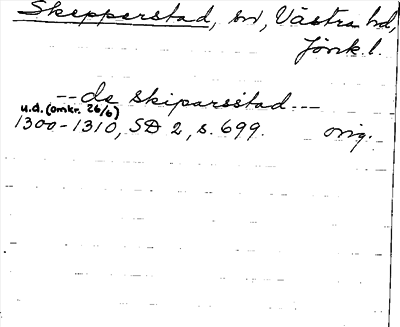 Skepperstad, sn, Västra hd,
Jönk. l.
-- de skiparsstad ---
u.d. (omkr. 26/6)
1300-1310, SD 2, s. 699. orig.